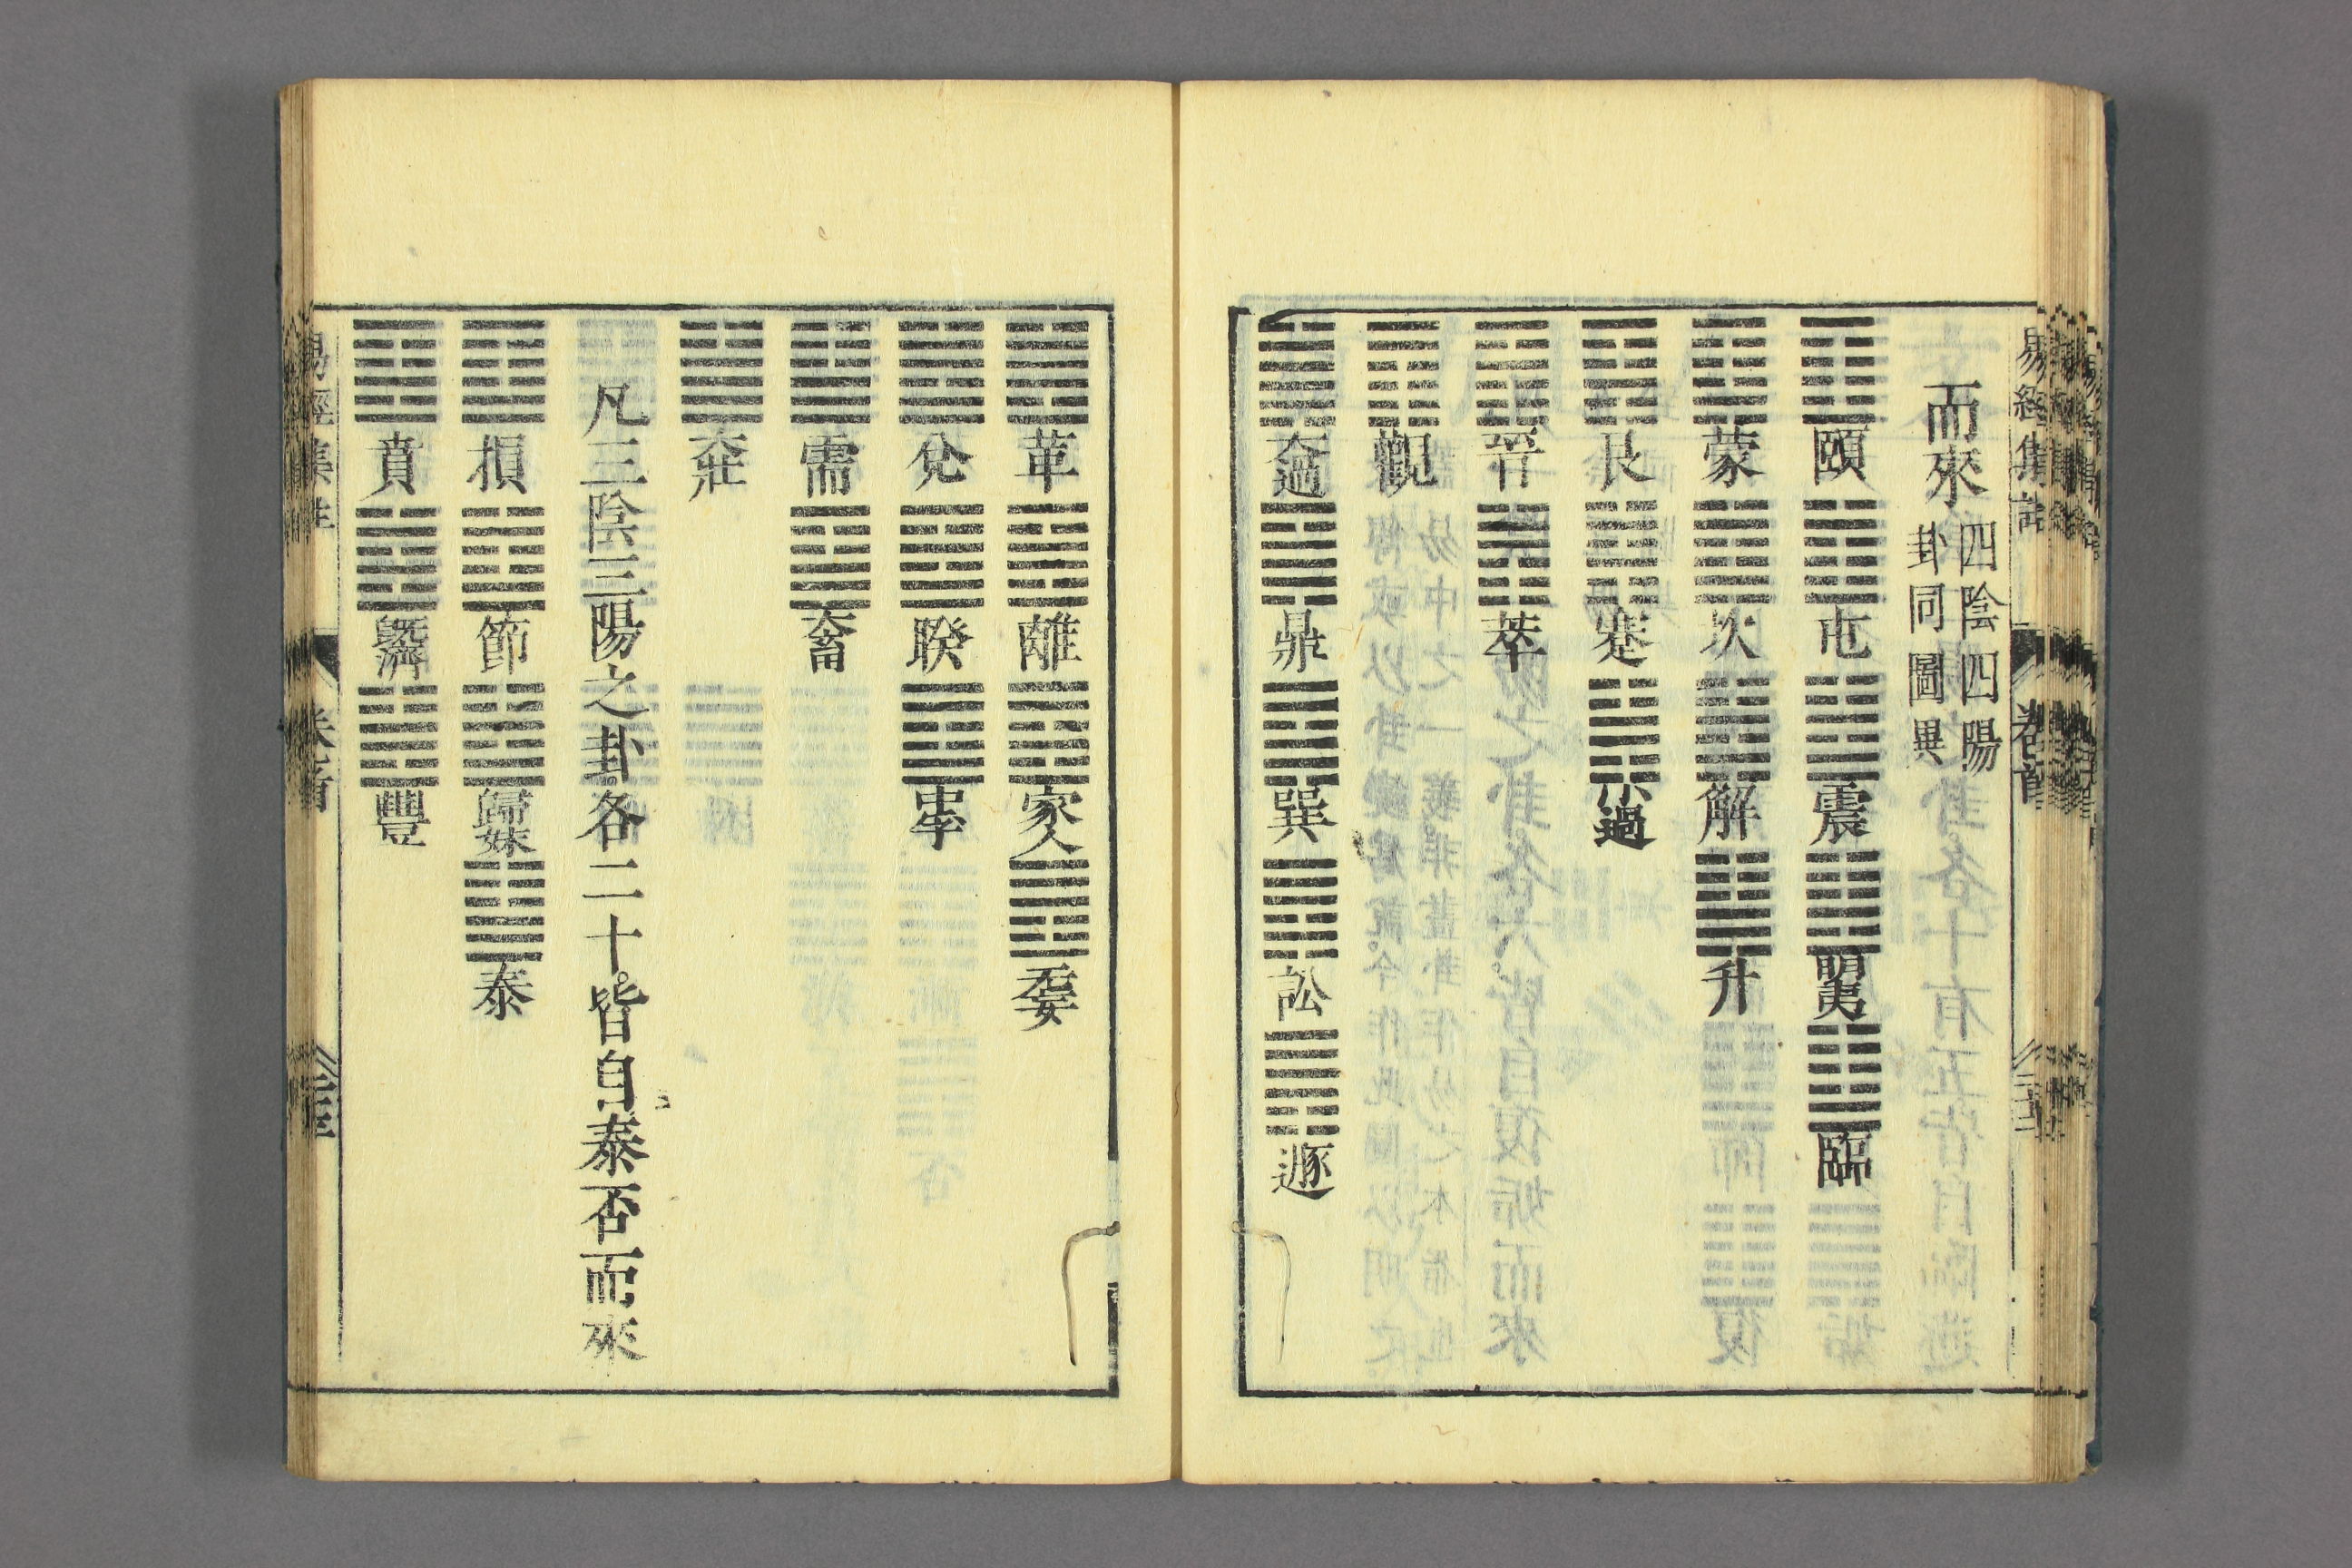 易經集註 卷首
而來 四陰四陽
卦同圖異
頤 屯 震 明夷 臨
蒙 坎 解 升
艮 蹇 小過
晉 萃
觀
大過 鼎 巽 訟 遯
革 離 家人 无妄
兌 睽 中孚
需 大畜
大壯
凡三陰三陽之卦各二十皆自泰否而來
損 節 歸妹 泰
賁 既濟 豐
易經集註 卷首